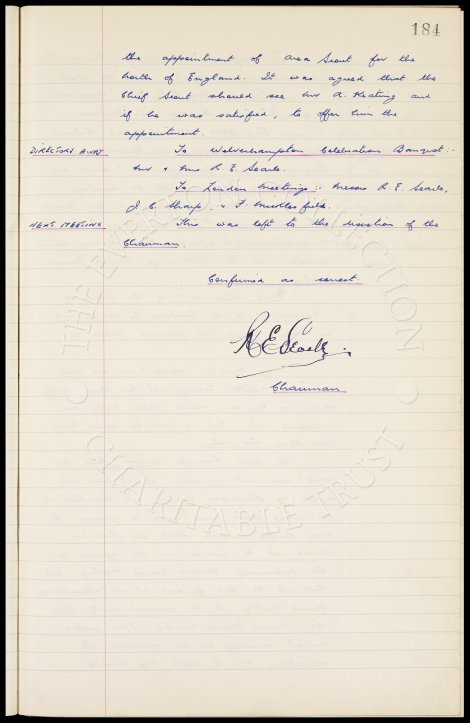 184
the appointment of area Scout for the
North of England. It was agreed that the
Chief Scout should see Mr A. Keating and
if he was satisfied, to offer him the
appointment.
DIRECTORS AWAY To Wolverhampton Celebration Banquet:-
Mr & Mrs R. E. Searle.
To London Meetings:- Messrs R. E. Searle,
J. C. Sharp. & F. Micklesfield.
NEXT MEETING This was left to the discretion of the
Chairman.
Confirmed as correct.
R E Searle
Chairman.
THE EVERTON COLLECTION
CHARITABLE TRUST